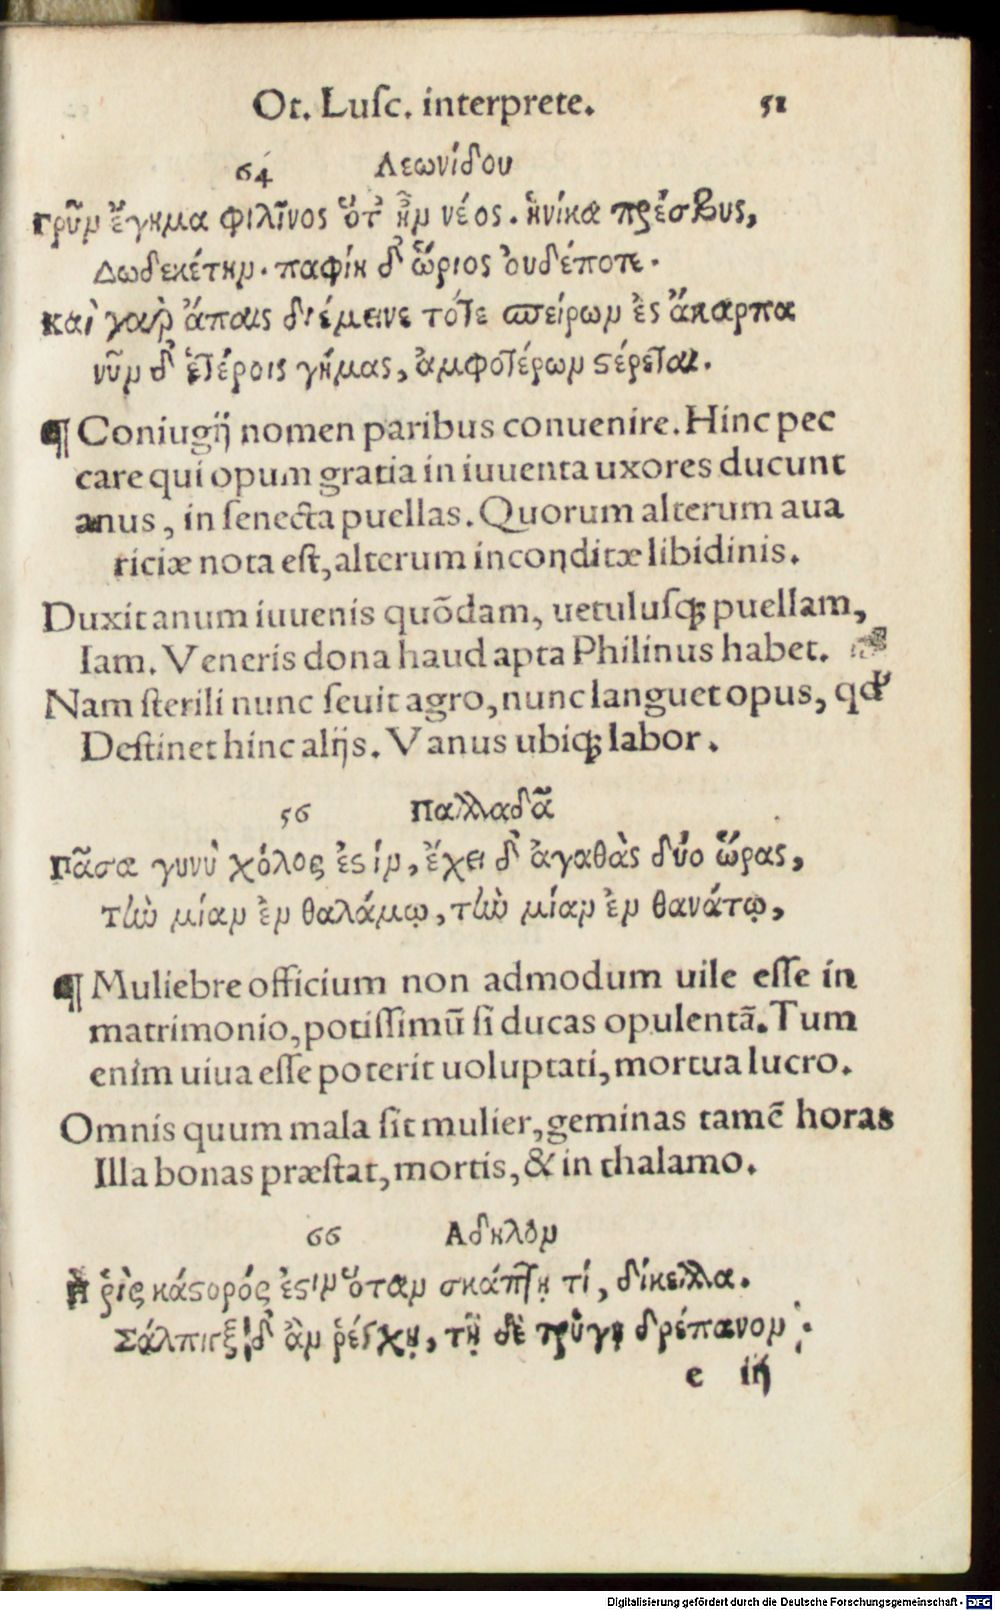 Ot. Lusc. interprete. 51
64 Λεωνίδου
Γρῦν ἔγημα φιλῖνος ὅτ' ἦν νέος. ἡνίκα πρέσβυς,
Δωδεκέτην. παφίη δ' ὥριος ὀυδέποτε.
καὶ γαὶρ ἄπαις διέμεινε τότε σπείρων ἐς ἄκαρπα
νῦν δ' ἑτέροις γήμας, ἀμφοτέρων στέρεται.
¶ Coniugij nomen paribus conuenire. Hinc pec
care qui opum gratia in iuuenta uxores ducunt
anus, in senecta puellas. Quorum alterum aua
riciæ nota est, alterum inconditæ libidinis.
Duxit anum iuuenis quōdam, uetulusq; puellam,
Iam. Veneris dona haud apta Philinus habet.
Nam sterili nunc seuit agro, nunc languet opus, qđ
Destinet hinc alijs. Vanus ubiq; labor.
56 Παλλαδᾶ
Πᾶσα γυνὺ χόλος ἐστίν, ἔχει δ' ἀγαθὰς δύο ὥρας,
τὼ μίαν ἐν θαλάμῳ, τὼ μίαν ἐν θανάτῳ,
¶ Muliebre officium non admodum uile esse in
matrimonio, potissimū si ducas opulentā. Tum
enim uiua esse poterit uoluptati, mortua lucro.
Omnis quum mala sit mulier, geminas tamē horas
Illa bonas præstat, mortis, & in thalamo.
66 Αδηλον
Ἡ ῥὶς κάστορός ἐστιν ὅταν σκάπτῃ τί, δίκελλα.
Σάλπιγξ δ' ἂν ῥέγχῃ, τῇ δὲ τρύγῃ δρέπανον:
e iij
Digitalisierung gefördert durch die Deutsche Forschungsgemeinschaft - DFG